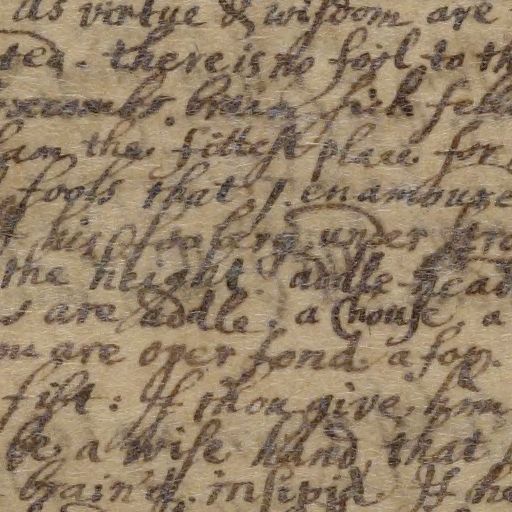 as virtue & wisdom are
there is no foil to th
brain sick fell
the fittest place for
fools that I. enamoure
his under
the height addle-head
s are addle. a Chouse a
are over fond a fop.
fist: If thou give him
be a wise hand, that
brain'd. insipid If he